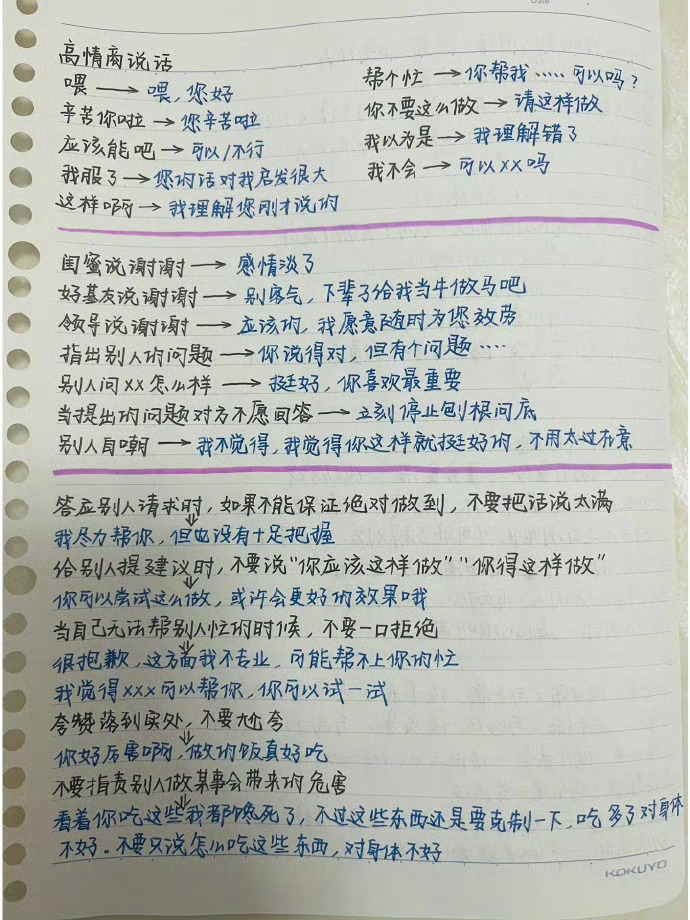 Date
高情商说话
喂 → 喂,您好
辛苦你啦 → 您辛苦啦
应该能吧 → 可以/不行
我服了 → 您的话对我启发很大
这样啊 → 我理解您刚才说的
帮个忙 → 你帮我……可以吗?
你不要这么做 → 请这样做
我以为是 → 我理解错了
我不会 → 可以xx吗
闺蜜说谢谢 → 感情淡了
好基友说谢谢 → 别客气,下辈子给我当牛做马吧
领导说谢谢 → 应该的,我愿意随时为您效劳
指出别人的问题 → 你说得对,但有个问题……
别人问xx怎么样 → 挺好,你喜欢最重要
当提出的问题对方不愿回答 → 立刻停止刨根问底
别人自嘲 → 我不觉得,我觉得你这样就挺好的,不用太过在意
答应别人请求时,如果不能保证绝对做到,不要把话说太满
我尽力帮你,但也没有十足把握
给别人提建议时,不要说“你应该这样做”“你得这样做”
你可以尝试这么做,或许会更好的效果哦
当自己无法帮别人忙的时候,不要一口拒绝
很抱歉,这方面我不专业,可能帮不上你的忙
我觉得xxx可以帮你,你可以试一试
夸赞落到实处,不要尬夸
你好厉害啊,做的饭真好吃
不要指责别人做某事会带来的危害
看着你吃这些我都馋死了,不过这些东西还是要克制一下,吃多了对身体
不好。不要只说怎么吃这些东西,对身体不好
KOKUYO